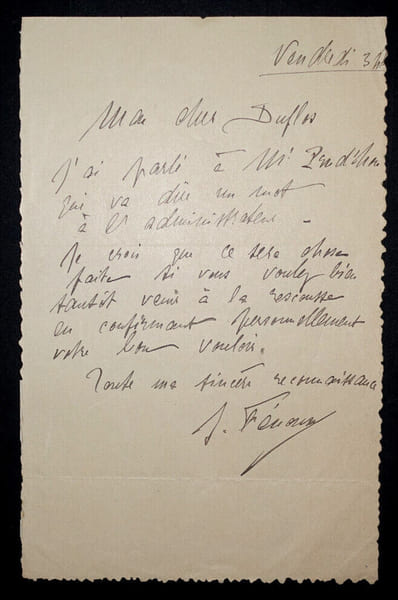 Vendredi 3
Mon cher Duflos
J'ai parlé à Mr
qui va dire un mot
à l'administrateur. -
Je crois que ce sera chose
faite si vous voulez bien
tantôt venir à la rescousse
en confirmant personnellement
votre bon vouloir.
Toute ma sincère reconnaissance
J. Fénoux